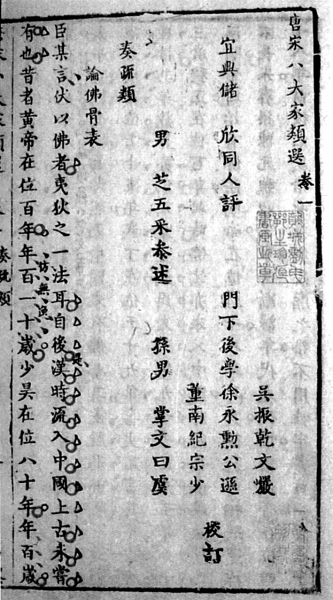 唐宋八大家類選 卷一
吳振乾文巖
宜興儲 欣同人評 門下後學徐永勲公遜
董南紀宗少 校訂
男 芝五采叅述 孫男 掌文曰虞
奏疏類
論佛骨表
臣某言伏以佛者夷狄之一法耳自後漢時流入中國上古未嘗
有也昔者黃帝在位百年年百一十歲少昊在位八十年年百歲